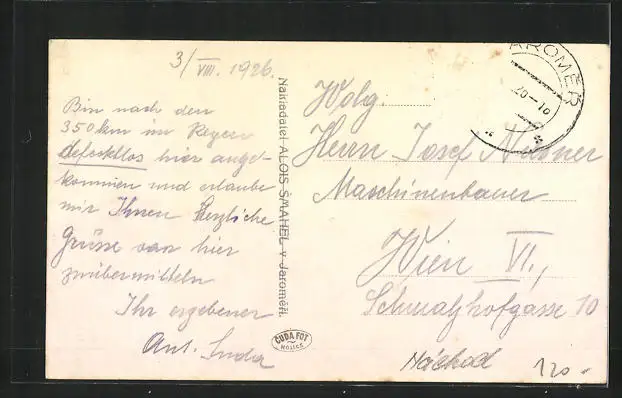 3/VIII. 1926.
Bin nach den
350 km im Regen
defecktlos hier ange-
kommen und erlaube
mir Ihnen Herzliche
Grüsse von hier
zu übermitteln
Ihr ergebener
Ant.
Nakladatel ALOIS ŠMAHEL v Jaroměři.
ČUDA FOT
HOLICE
JAROMĚŘ
Wolg.
Herrn Josef
Maschinenbauer
Wien VI.,
Schmalzhofgasse 10
Náchod
120.-